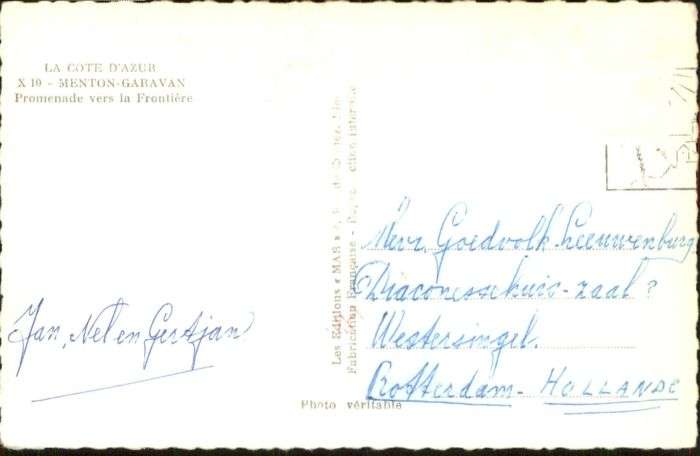 LA COTE D'AZUR
X 10 - MENTON-GARAVAN
Promenade vers la Frontière
Jan, Nel en Gertjan
Les Editions « MAR »
Fabrication Française - interdite
Mevr. Goedvolk-Leeuwenburg
Diaconessehuis-zaal?
Westersingel.
Rotterdam - HOLLANDE
Photo véritable